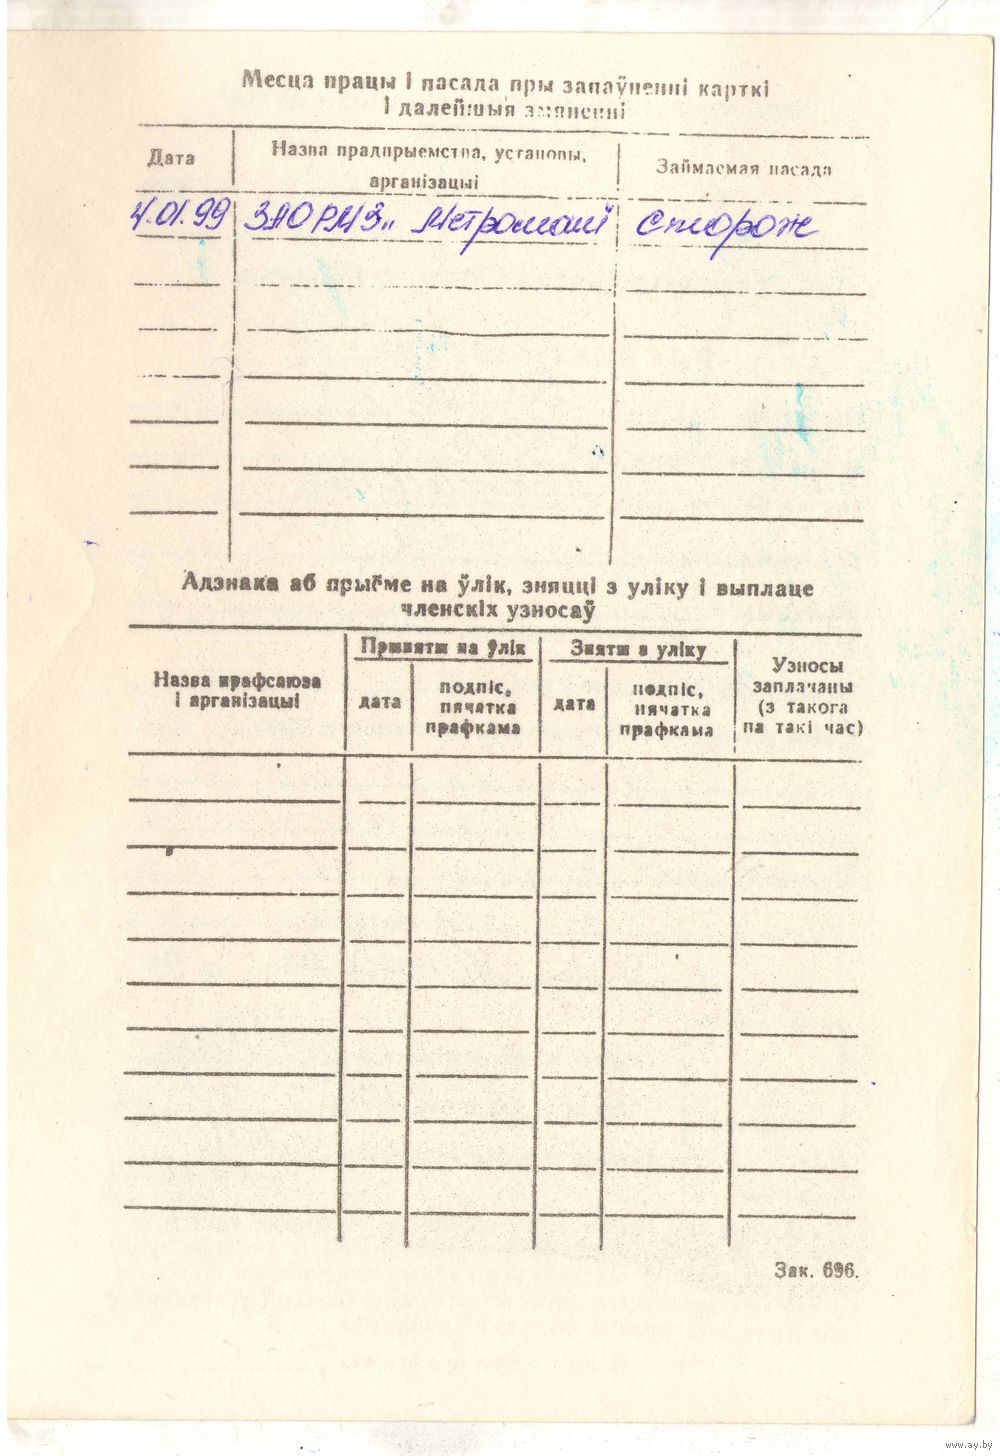 Месца працы і пасада пры запаўненні карткі
і далейшыя змяненні
Дата
Назва прадпрыемства, установы,
арганізацыі
Займаемая пасада
4.01.99 ЗАО РМЗ „ Сторож
Адзнака аб прыёме на ўлік, зняцці з уліку і выплаце
членскіх узносаў
Назва прафсаюза
і арганізацыі
Прыняты на ўлік
дата
подпіс,
пячатка
прафкама
Зняты з уліку
дата
подпіс,
пячатка
прафкама
Узносы
заплачаны
(з такога
па такі час)
Зак. 696.
www.ay.by